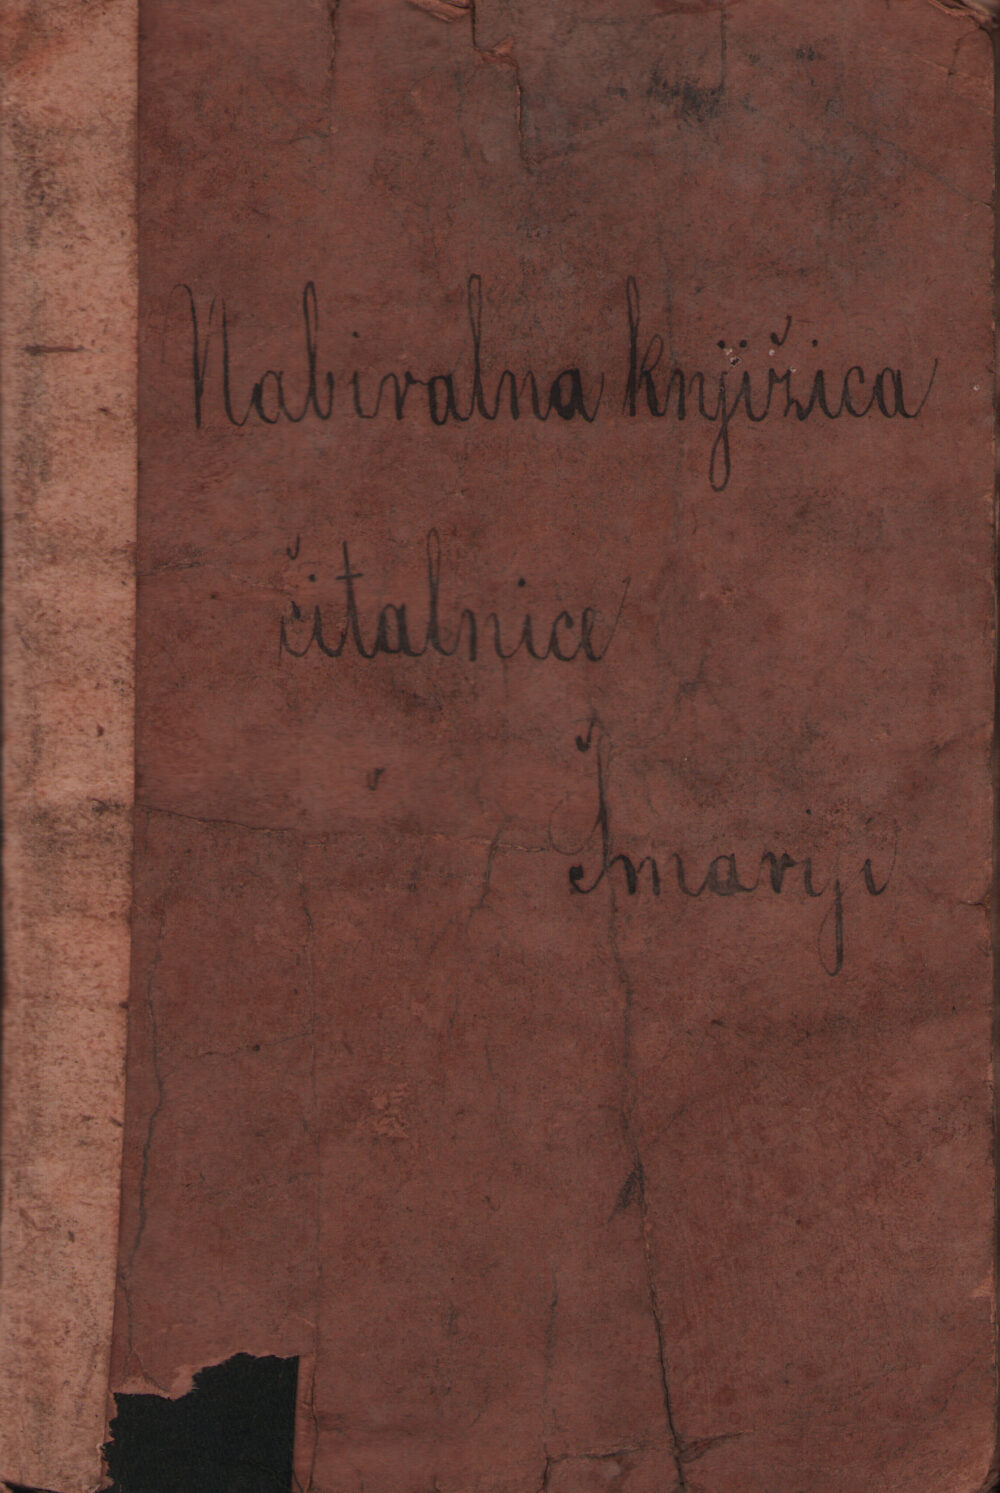 Nabiralna knjižica
čitalnice
v
Šmariji